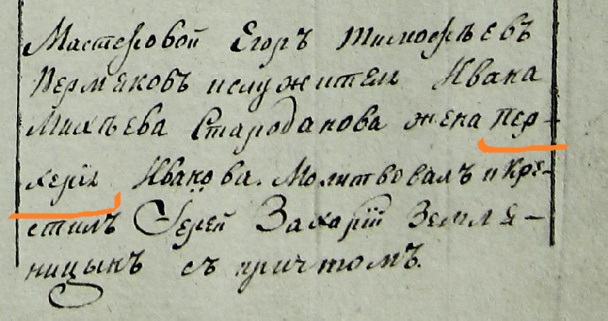 Мастеровой Егоръ Тимофѣевъ
Пермяковъ и служителя Ивана
Михѣева Староданова жена пер-
херія Иванова. Молитвовалъ и кре-
стилъ Іерей Захарій Земля-
ницынъ съ причтомъ.